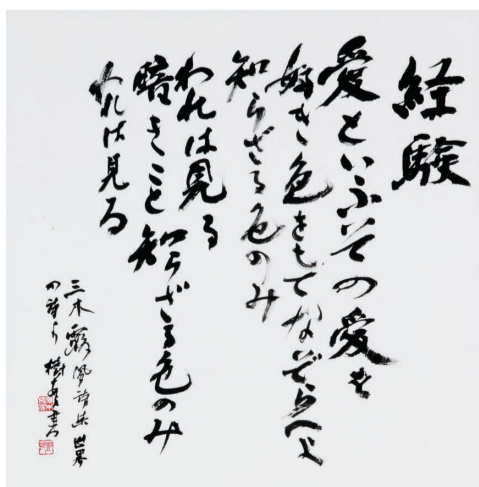 経験
愛といふいその愛を
好き色をもてなぞらへよ
知らざる色のみ
われは見る
暗きこと知らざる色のみ
われは見る
三木露風詩集世界
の詩より 樹